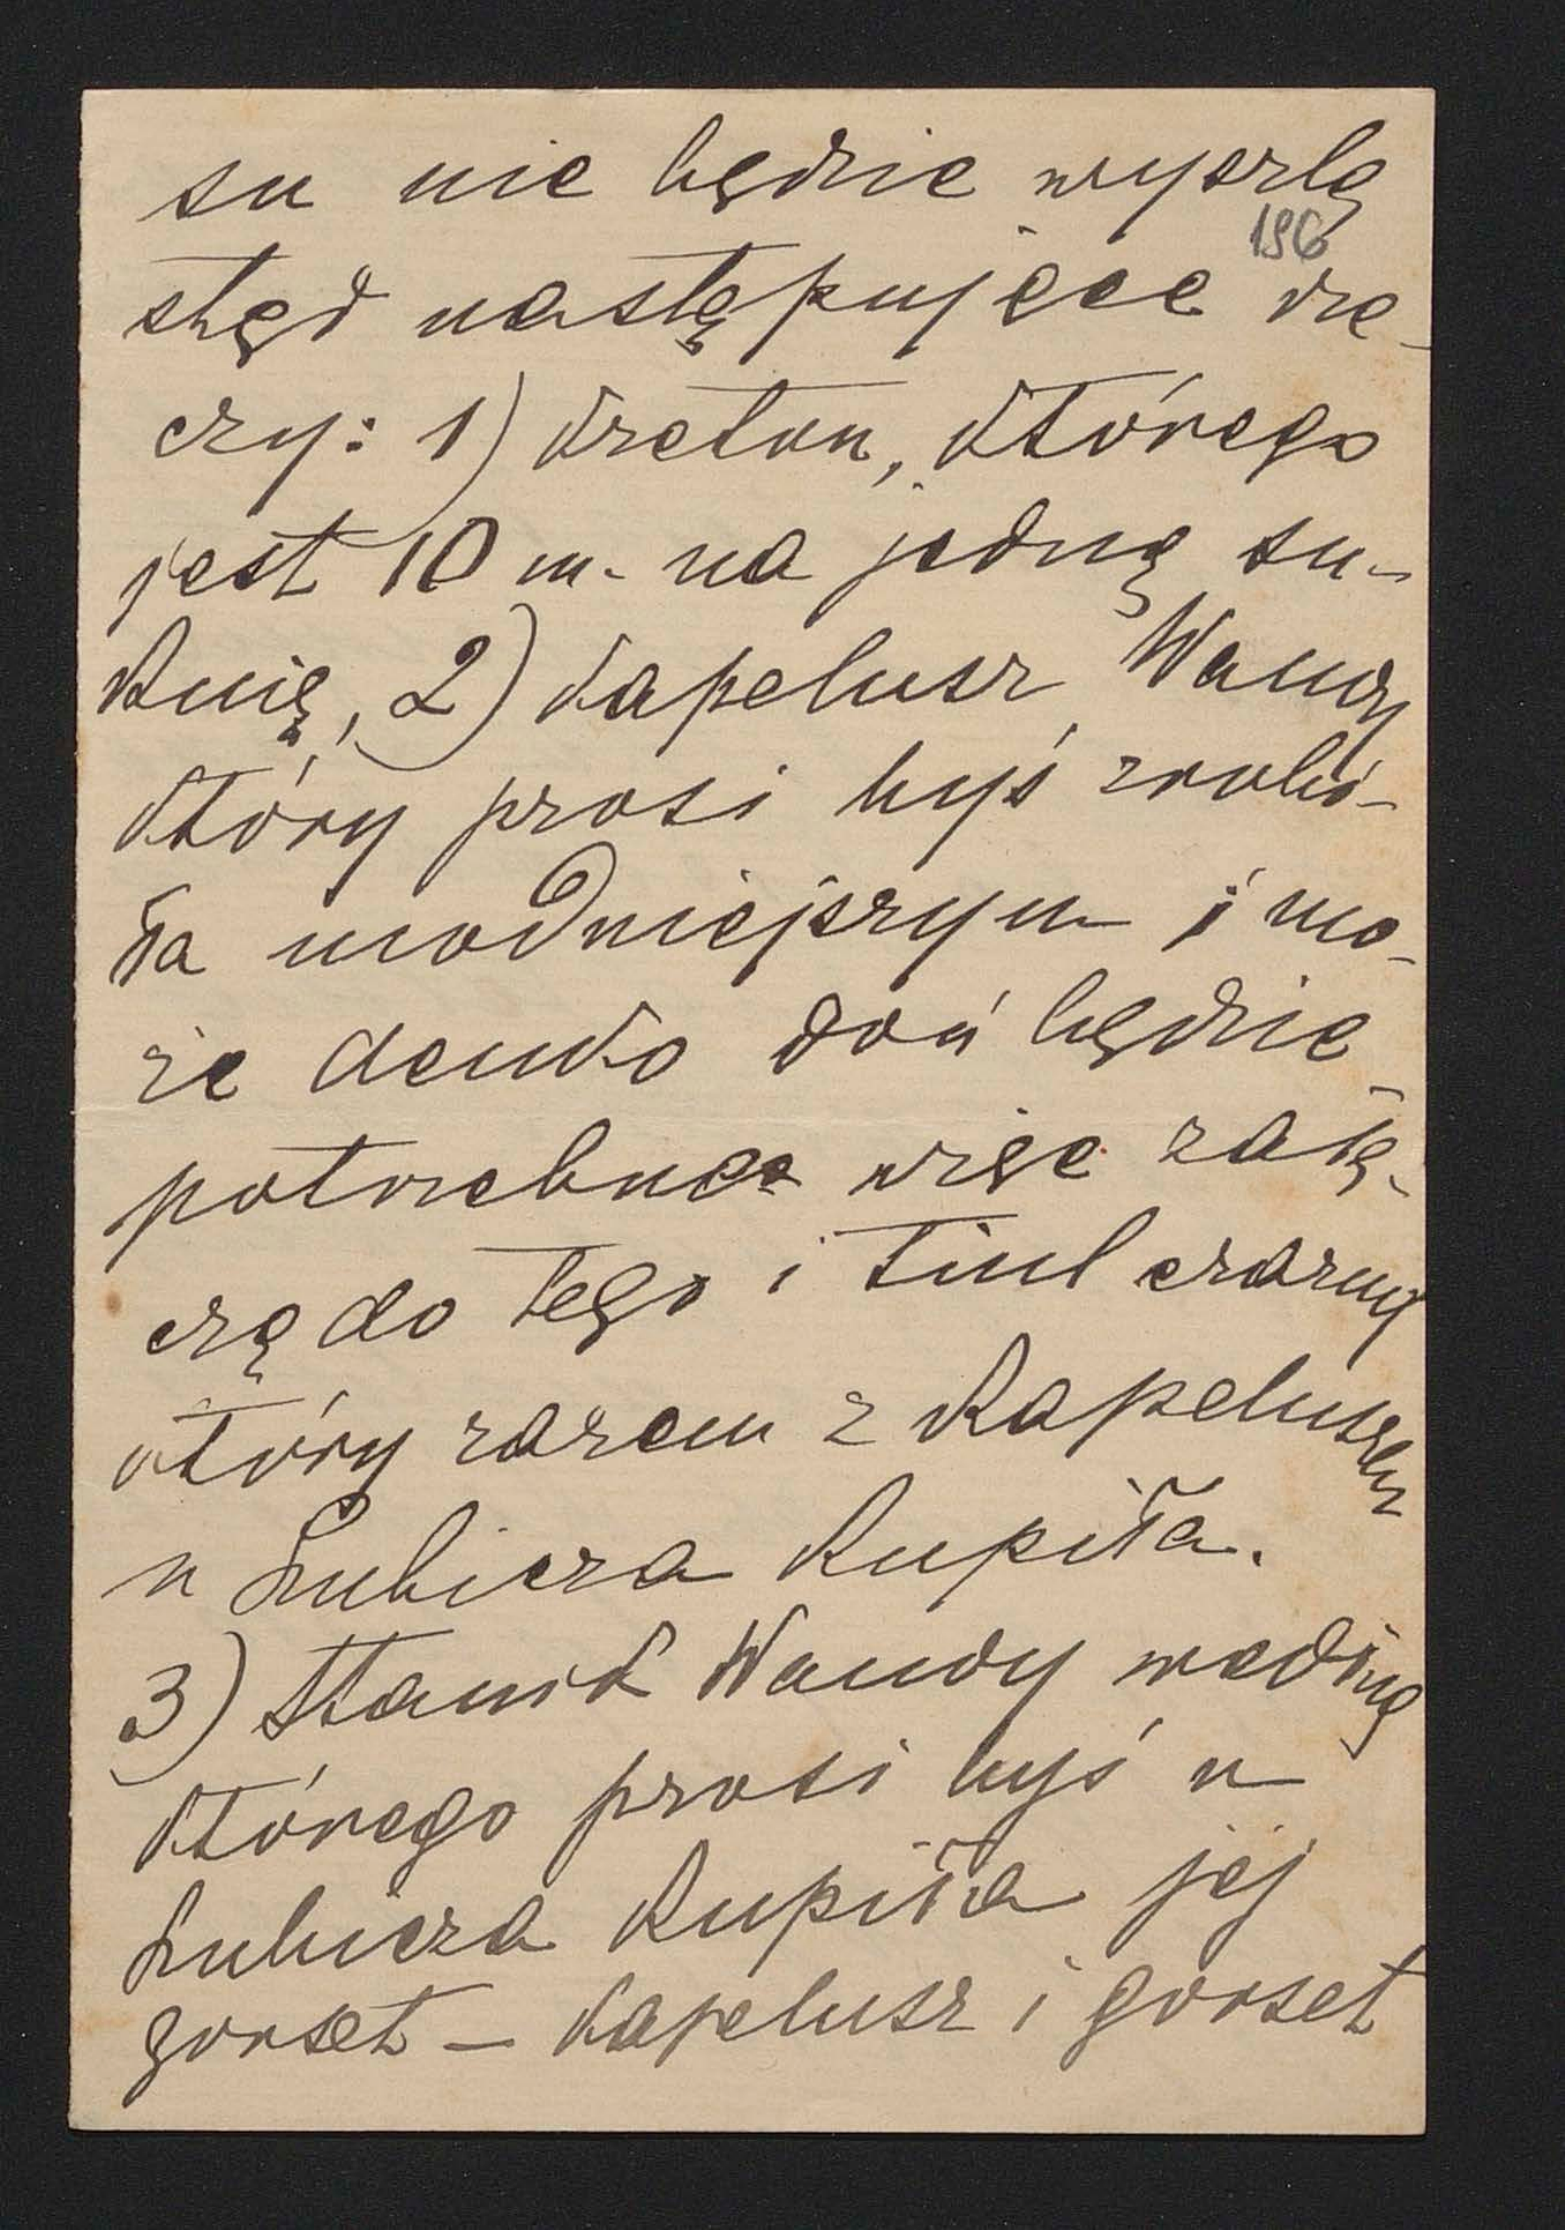 su nie będzie wyszlę
196
stąd następujące rze-
czy: 1) kreton, którego
jest 10 m. na jedną su-
knię, 2) kapelusz Wandy
który prosi byś zrobi-
ła modniejszym i mo-
że denko doń będzie
potrzebne więc załą-
czę do tego i tiul czarny
który razem z kapeluszem
u Lubicza kupiła.
3) Stanik Wandy według
którego prosi byś u
Lubicza kupiła jej
gorset – kapelusz i gorset